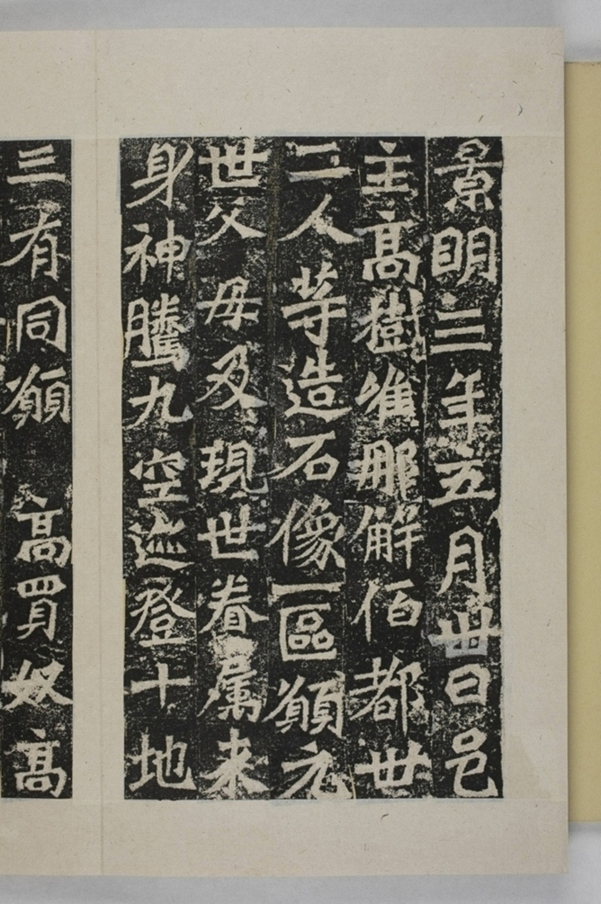 景明三年五月卅日邑
主高樹唯那解佰都卅
二人等造石像一區願元
世父母及現世眷属来
身神騰九空迹登十地
三有同願 高買奴高